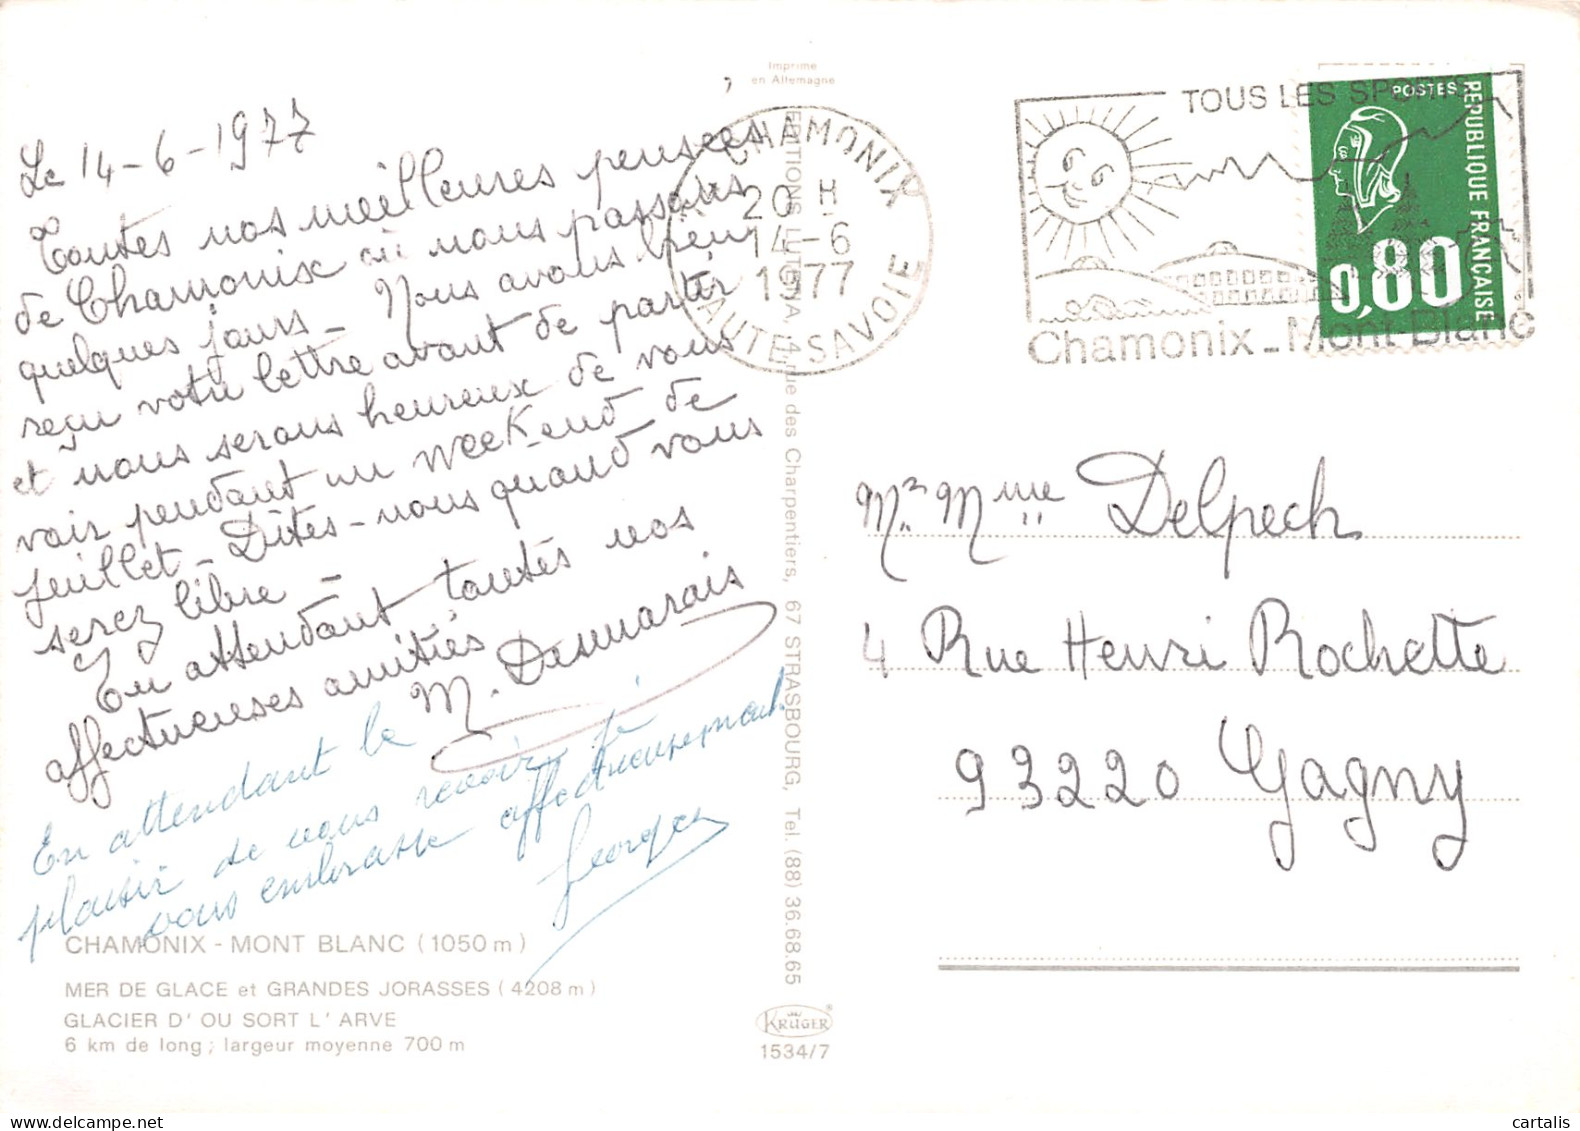 Le 14-6-1977
Toutes nos meilleures pensées
de Chamonix où nous passons
quelques jours - Nous avons bien
reçu votre lettre avant de partir
et nous serons heureux de vous
voir pendant un week-end de
juillet - Dites-nous quand vous
serez libre -
En attendant toutes nos
affectueuses amitiés
M. Desmarais
En attendant le
plaisir de vous revoir je
vous embrasse affectueusement
Georges
CHAMONIX - MONT BLANC (1050 m)
MER DE GLACE et GRANDES JORASSES (4208 m)
GLACIER D' OU SORT L' ARVE
6 km de long; largeur moyenne 700 m
Imprime
en Allemagne
EDITIONS LUTETIA, 4, rue des Charpentiers, 67 STRASBOURG, Tel. (88) 36.68.65
KRÜGER
1534/7
CHAMONIX
20 H
14-6
1977
HAUTE-SAVOIE
TOUS LES SPORTS
Chamonix - Mont Blanc
POSTES
REPUBLIQUE FRANÇAISE
0,80
Mr. Mme Delpech
4 Rue Henri Rochette
93220 Gagny
cartalis